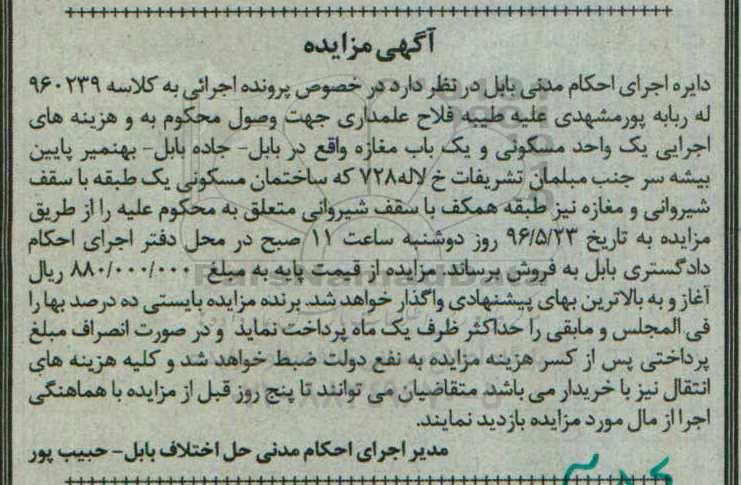 آگهی مزایده
دایره اجرای احکام مدنی بابل در نظر دارد در خصوص پرونده اجرائی به کلاسه ۹۶۰۲۳۹
له ربابه پورمشهدی علیه طیبه فلاح علمداری جهت وصول محکوم به و هزینه های
اجرایی یک واحد مسکونی و یک باب مغازه واقع در بابل- جاده بابل- بهنمیر پایین
بیشه سر جنب مبلمان تشریفات خ لاله۷۲۸ که ساختمان مسکونی یک طبقه با سقف
شیروانی و مغازه نیز طبقه همکف با سقف شیروانی متعلق به محکوم علیه را از طریق
مزایده به تاریخ ۹۶/۵/۲۳ روز دوشنبه ساعت ۱۱ صبح در محل دفتر اجرای احکام
دادگستری بابل به فروش برساند. مزایده از قیمت پایه به مبلغ ۸۸۰/۰۰۰/۰۰۰ ریال
آغاز و به بالاترین بهای پیشنهادی واگذار خواهد شد. برنده مزایده بایستی ده درصد بها را
فی المجلس و مابقی را حداکثر ظرف یک ماه پرداخت نماید و در صورت انصراف مبلغ
پرداختی پس از کسر هزینه مزایده به نفع دولت ضبط خواهد شد و کلیه هزینه های
انتقال نیز با خریدار می باشد. متقاضیان می توانند تا پنج روز قبل از مزایده با هماهنگی
اجرا از مال مورد مزایده بازدید نمایند.
مدیر اجرای احکام مدنی حل اختلاف بابل- حبیب پور
ParsNamadData